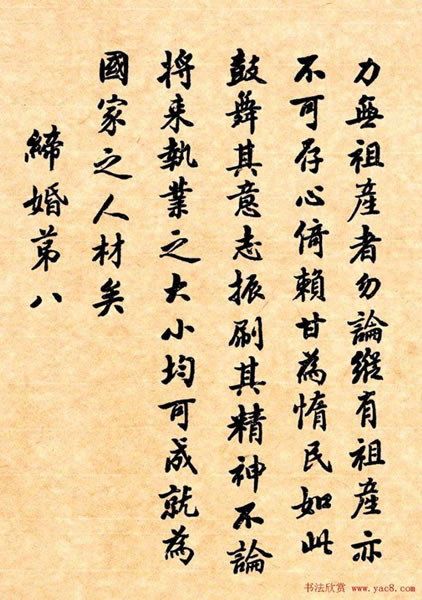 力無祖產者勿論縱有祖產亦
不可存心倚賴甘為惰民如此
鼓舞其意志振刷其精神不論
將來執業之大小均可成就為
國家之人材矣
締婚第八
书法欣赏 www.yac8.com